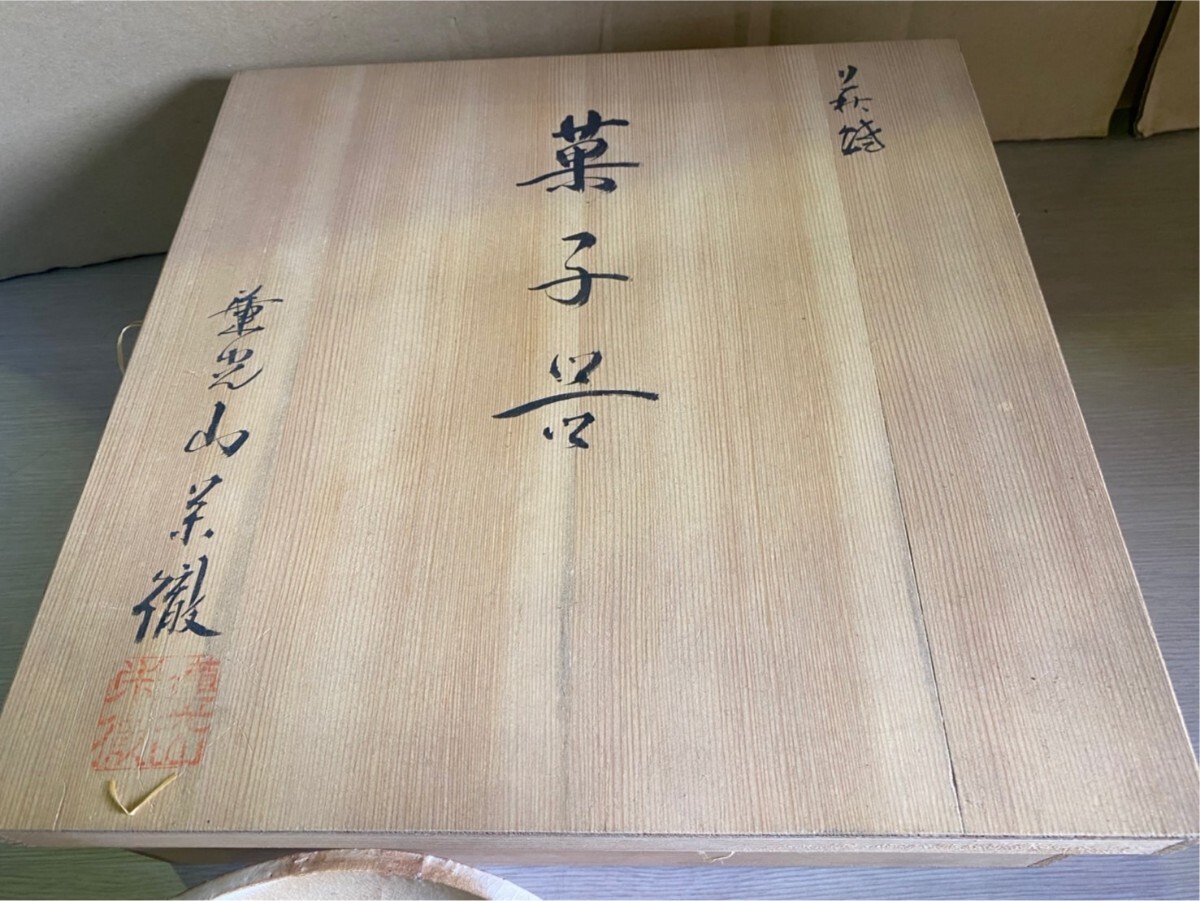 萩焼
菓子器
光山栄徹